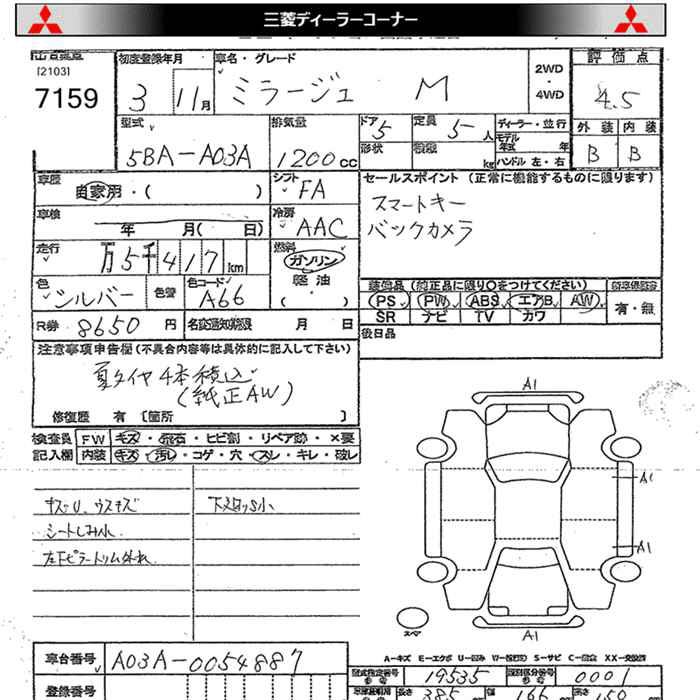 三菱ディーラーコーナー
[2103]
7159
初度登録年月
3 11月
車名・グレード
ミラージュ M
2WD
・
4WD
評価点
4.5
外装 内装
B B
型式
5BA-A03A
排気量
1200cc
ドア 5
定員 5人
形状
積載 kg
ディーラー・並行
モデル年式 年
ハンドル 左・右
車歴
自家用・( )
シフト
FA
車検
年 月( 日)
冷房
AAC
走行
万5千417km
燃料
ガソリン
軽油
( )
色
シルバー
色替
色コード
A66
R券 8650円
名変通知期限 月 日
セールスポイント (正常に機能するものに限ります)
スマートキー
バックカメラ
装備品(純正品に限り○をつけてください)
PS PW ABS エアB AW
SR ナビ TV カワ
有・無
後日品
注意事項申告欄(不具合内容等は具体的に記入して下さい)
夏タイヤ4本積込
(純正AW)
修復歴 有 [箇所 ]
検査員 FW キズ・飛石・ヒビ割・リペア跡・×要
記入欄 内装 キズ・汚レ・コゲ・穴・スレ・キレ・破レ
キズU、ウスキズ
シートしみ小
左下ピラートリム外れ
A1
A1
A1
A1
スペア
車台番号 A03A-0054887
登録番号
A-キズ E-エクボ U-凹み S-サビ XX-交換済
型式指定番号 19535
類別区分番号 0001
長さ 385
幅 166
高さ 150